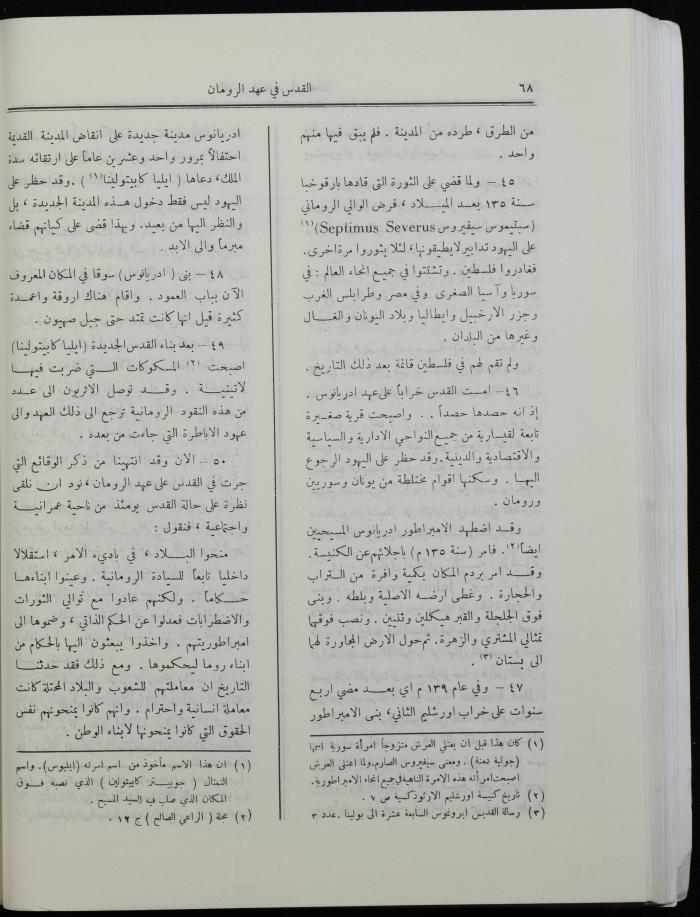 ٦٨
القدس في عهد الرومان
من الطرق ، طرده من المدينة . فلم يبق فيها منهم
واحد .
٤٥ – ولما قضي على الثورة التي قادها بارقوخبا
سنة ١٣٥ بعد الميلاد ، فرض الوالي الروماني
(سبتيموس سيفيروس Septimus Severus)(١)
على اليهود تدابير لا يطيقونها، لئلا يثوروا مرة اخرى.
فغادروا فلسطين . وتشتتوا في جميع انحاء العالم : في
سوريا وآسيا الصغرى وفي مصر وطرابلس الغرب
وجزر الارخبيل وايطاليا وبلاد اليونان والغال
وغيرها من البلدان .
ولم تقم لهم في فلسطين قائمة بعد ذلك التاريخ .
٤٦ – امست القدس خراباً على عهد ادريانوس .
إذ انه حصدها حصداً . . واصبحت قرية صغيرة
تابعة لقيسارية من جميع النواحي الادارية والسياسية
والاقتصادية والدينية . وقد حظر على اليهود الرجوع
اليها . وسكنها اقوام مختلطة من يونان وسوريين
ورومان .
وقد اضطهد الامبراطور ادريانوس المسيحيين
ايضاً(٢). فامر (سنة ١٣٥ م) باجلائهم عن الكنيسة.
وقد امر بردم المكان بكمية وافرة من التراب
والحجارة . وغطى ارضه الاصلية وبلطه . وبنى
فوق الجلجلة والقبر هيكلين وثنيين . ونصب فوقها
تمثالي المشتري والزهرة. ثم حول الارض المجاورة لها
الى بستان (٣) .
٤٧ – وفي عام ١٣٩ م اي بعد مضي اربع
سنوات على خراب اورشليم الثاني، بنى الامبراطور
(١) كان هذا قبل ان يعتلي العرش متزوجاً امرأة سورية اسمها
(جولية دمنة) . ومعنى سيفيروس الصارم. ولما اعتلى العرش
اصبحت امرأته هذه الامرة الناهية في جميع انحاء الامبراطورية.
(٢) تاريخ كنيسة اورشليم الارثوذكسية ص ٧ .
(٣) رسالة القديس ايرونموس السابعة عشرة الى بولينا . عدد ٣
ادريانوس مدينة جديدة على انقاض المدينة القديمة
احتفالاً بمرور واحد وعشرين عاماً على ارتقائه سدة
الملك، دعاها ( ايليا كابيتولينا(١) ) . وقد حظر على
اليهود ليس فقط دخول هذه المدينة الجديدة ، بل
والنظر اليها من بعيد. وبهذا قضى على كيانهم قضاء
مبرماً والى الابد .
٤٨ – بنى ( ادريانوس) سوقا في المكان المعروف
الآن بباب العمود . واقام هناك اروقة واعمدة
كثيرة قيل انها كانت تمتد حتى جبل صهيون .
٤٩ – بعد بناء القدس الجديدة (ايليا كابيتولينا)
اصبحت (٢) المسكوكات التي ضربت فيها
لاتينية . وقد توصل الاثريون الى عدد
من هذه النقود الرومانية ترجع الى ذلك العهد والى
عهود الاباطرة التي جاءت من بعده .
٥٠ – الآن وقد انتهينا من ذكر الوقائع التي
جرت في القدس على عهد الرومان ، نود ان نلقى
نظرة على حالة القدس يومئذ من ناحية عمرانية
واجتماعية ، فنقول :
منحوا البلاد ، في باديء الامر ، استقلالا
داخليا تابعاً للسيادة الرومانية . وعينوا ابناءها
حكاماً . ولكنهم عادوا مع توالي الثورات
والاضطرابات فعدلوا عن الحكم الذاتي ، وضموها الى
امبراطوريتهم . واخذوا يبعثون اليها بالحكام من
ابناء روما ليحكموها . ومع ذلك فقد حدثنا
التاريخ ان معاملتهم للشعوب والبلاد المحتلة كانت
معاملة انسانية واحترام . وانهم كانوا يمنحونهم نفس
الحقوق التي كانوا يمنحونها لابناء الوطن .
(١) ان هذا الاسم مأخوذ من اسم اسرته (ايليوس). واسم
التمثال ( جوبيتر كابيتولين ) الذي نصبه فوق
المكان الذي صلب فيه السيد المسيح .
(٢) مجلة ( الراعي الصالح ) ج ١٢ .